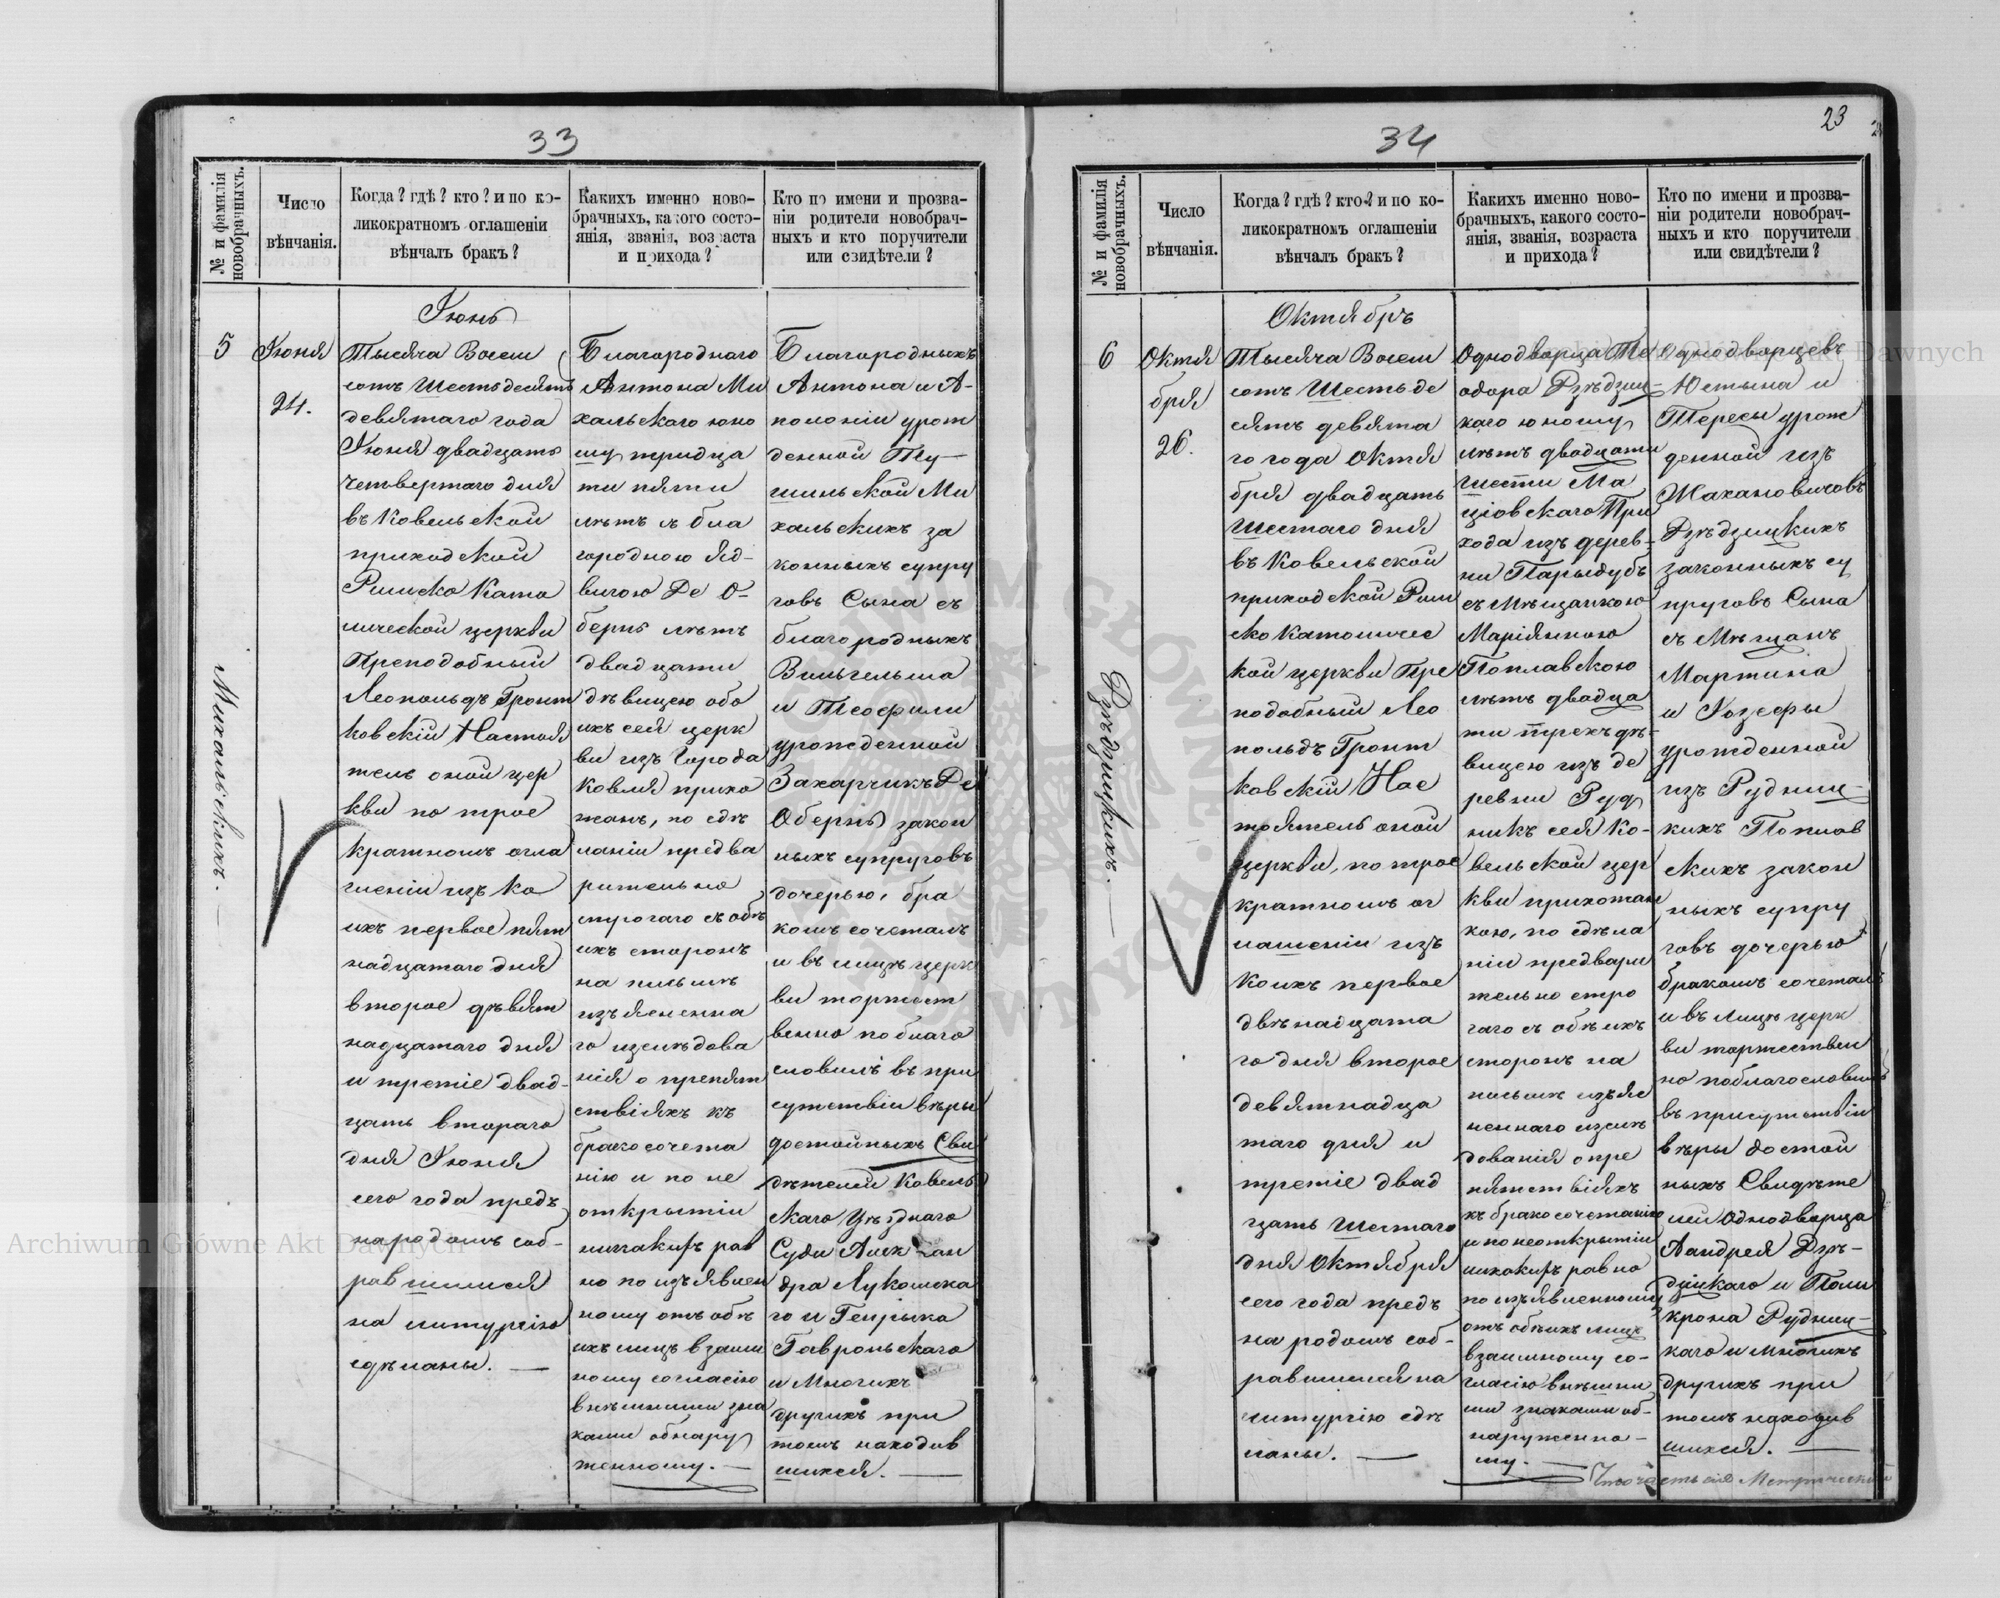 33
№ и фамилія
новобрачныхъ.
Число
вѣнчанія.
Когда? гдѣ? кто? и по ко-
ликократномъ оглашеніи
вѣнчалъ бракъ?
Какихъ именно ново-
брачныхъ, какого состо-
янія, званія, возраста
и прихода?
Кто по имени и прозва-
ніи родители новобрач-
ныхъ и кто поручители
или свидѣтели?
5
Михальскихъ. —
Іюня
24.
Іюнь
Тысяча Восем
сотъ Шестьдесятъ
девятаго года
Іюня двадцать
четвертаго дня
въ Ковельской
приходской
Римско Като
лической церкви
Преподобный
Леопольдъ Гронт
ковскій Настоя
тель оной цер
кви по трое
кратномъ огла
шеніи изъ ко
ихъ первое пят
надцатаго дня
второе дѣвят
надцатаго дня
и третіе двад-
цать втораго
дня Іюня
сего года предъ
народомъ соб-
равшимся
на литургію
сдѣланы. —
Благороднаго
Антона Ми
хальскаго юно
шу тридца
ти пяти
лѣтъ съ бла
городною Яд-
вигою Де О-
бернъ лѣтъ
двадцати
дѣвицею обо
ихъ сей церк
ви изъ Города
Ковля прихо
жанъ, по сдѣ
ланіи предва
рительно
строгаго съ обѣ
ихъ сторонъ
на письмѣ
изъясненна
го изслѣдова
нія о препят
ствіяхъ къ
бракосочета
нію и по не
открытіи
никакихъ рав
но по изъявлен
ному отъ обѣ
ихъ лицъ взаим
ному согласію
внѣшними зна
ками обнару
женному. —
Благородныхъ
Антона и А-
полоніи урож
денной
Ми
хальскихъ за
конныхъ супру
говъ Сына съ
благородныхъ
Вильгельма
и Теофили
урожденной
Захарчикъ Де
Обернъ закон
ныхъ супруговъ
дочерью, бра
комъ сочеталъ
и въ лицѣ церк
ви торжест
венно поблаго
словилъ въ при
сутствіи вѣры
достойныхъ Сви
дѣтелей Ковель
скаго Уѣзднаго
Суда Алексан
дра Лукомска
го и Генрыка
Гавроньскаго
и Многихъ
другихъ при
томъ находив
шихся. —
34
23
№ и фамилія
новобрачныхъ.
Число
вѣнчанія.
Когда? гдѣ? кто? и по ко-
ликократномъ оглашеніи
вѣнчалъ бракъ?
Какихъ именно ново-
брачныхъ, какого состо-
янія, званія, возраста
и прихода?
Кто по имени и прозва-
ніи родители новобрач-
ныхъ и кто поручители
или свидѣтели?
6
Дзѣдзицкихъ. —
Октя
бря
26.
Октябрь
Тысяча Восем
сотъ Шестьде
сятъ девята
го года Октя
бря двадцать
Шестаго дня
въ Ковельской
приходской Рим
ско Католичес
кой церкви Пре
подобный Лео
польдъ Гронт
ковскій Нас
тоятель оной
церкви, по трое
кратномъ ог
лашеніи изъ
коихъ первое
двѣнадцата
го дня второе
девятнадца
таго дня и
третіе двад
цать Шестаго
дня Октября
сего года предъ
народомъ соб-
равшимся на
литургію сдѣ
ланы. —
Однодворца Те
одора Дзѣдзиц-
каго юношу
лѣтъ двадцати
шести Ма
ціовскаго При
хода изъ дерев-
ни Парыдубъ
съ Мѣщанкою
Маріянною
Поплавскою
лѣтъ двадца
ти трехъ дѣ-
вицею изъ де
ревни Руд
никъ сея Ко-
вельской цер
кви прихожан
кою, по сдѣла
ніи предвари
тельно стро
гаго съ обѣихъ
сторонъ на
письмѣ изъяс
неннаго изслѣ
дованія о пре
пятствіяхъ
къ бракосочетанію
и по неоткрытіи
никакихъ равно
по изъявленному
отъ обѣихъ лицъ
взаимному со-
гласію внѣшни
ми знаками об-
наруженно-
му. —
Однодворцевъ
Юстына и
Тересы урож
денной изъ
Жахановичовъ
Дзѣдзицкихъ
законныхъ су
пруговъ Сына
съ Мѣщанъ
Мартина
и Іозефы
урожденной
изъ Рудниц-
кихъ Поплав
скихъ закон
ныхъ супру
говъ дочерью
бракомъ сочеталъ
и въ Лицѣ церк
ви торжествен
но поблагословилъ
въ присутствіи
вѣры достой
ныхъ Свидѣте
лей Однодворца
Андрея Дзѣ-
дзицкаго и Поли
крона Рудниц-
каго и Многихъ
другихъ при
томъ находив
шихся. —
Что часть сія Метрической
Archiwum Główne Akt Dawnych
Archiwum Główne Akt Dawnych
ARCHIWUM GŁÓWNE AKT DAWNYCH